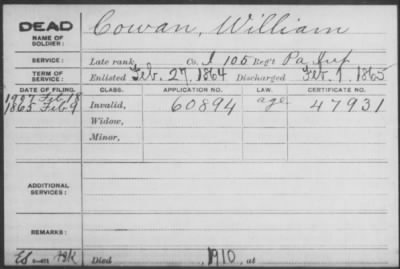 DEAD
NAME OF SOLDIER: Cowan, William
SERVICE: Late rank, Co. I 105 Reg't Pa Inf
TERM OF SERVICE: Enlisted Feb. 27, 1864 Discharged Feb. 1, 1865
DATE OF FILING. CLASS. APPLICATION NO. LAW. CERTIFICATE NO.
1907 Feb 18
1865 Feb 9 Invalid, 60894 age 47931
Widow,
Minor,
ADDITIONAL SERVICES:
REMARKS:
Died 1910, at